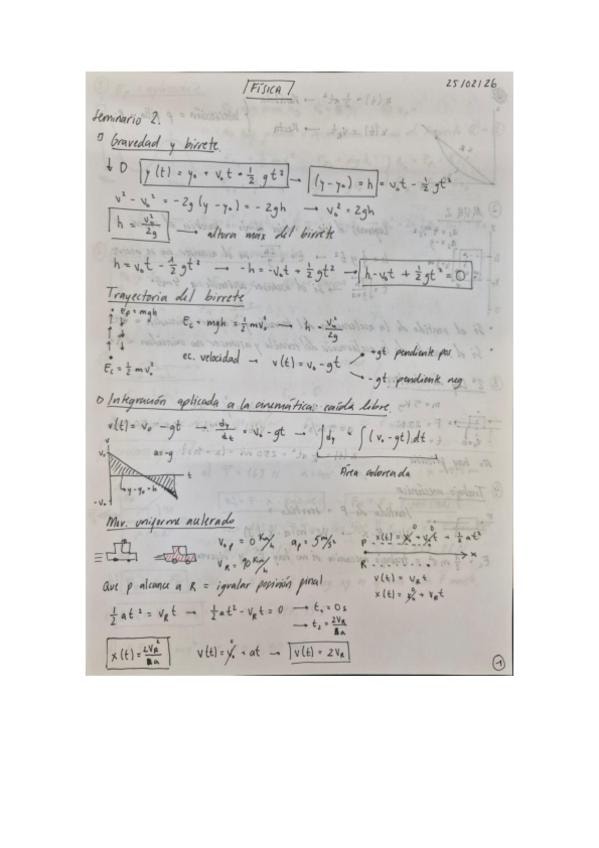 FÍSICA
25/02/26
Seminario 2.
Gravedad y birrete.
↓ 0 y(t) = y₀ + v₀t - 1/2 gt² → (y-y₀) = h = v₀t - 1/2 gt²
v² - v₀² = -2g(y-y₀) = -2gh → v₀² = 2gh
h = v₀²/2g → altura máx del birrete
h = v₀t - 1/2 gt² → -h = -v₀t + 1/2 gt² → h - v₀t + 1/2 gt² = 0
Trayectoria del birrete
Ep = mgh
Ec = mgh = 1/2 mv₀² → h = v₀²/2g
ec. velocidad → v(t) = v₀ - gt
+gt pendiente pos
-gt pendiente neg
Ec = 1/2 mv₀²
Integración aplicada a la cinemática: caída libre.
v(t) = v₀ - gt → dy/dt = v₀ - gt → ∫dy = ∫(v₀ - gt).dt
Área coloreada
v
v₀
a = -g
t
y - y₀ = h
-v₀
Mov. uniforme acelerado
v₀p = 0 km/h ap = 5 m/s²
vR = 90 km/h
P x(t) = x₀ + v₀t + 1/2 at²
x
R
v(t) = vR t
x(t) = x₀ + vR t
Que P alcance a R = igualar posición final
1/2 at² = vR t → 1/2 at² - vR t = 0 → t₁ = 0 s
→ t₂ = 2vR/a
x(t) = 2vR²/a v(t) = v₀ + at → v(t) = 2vR
1